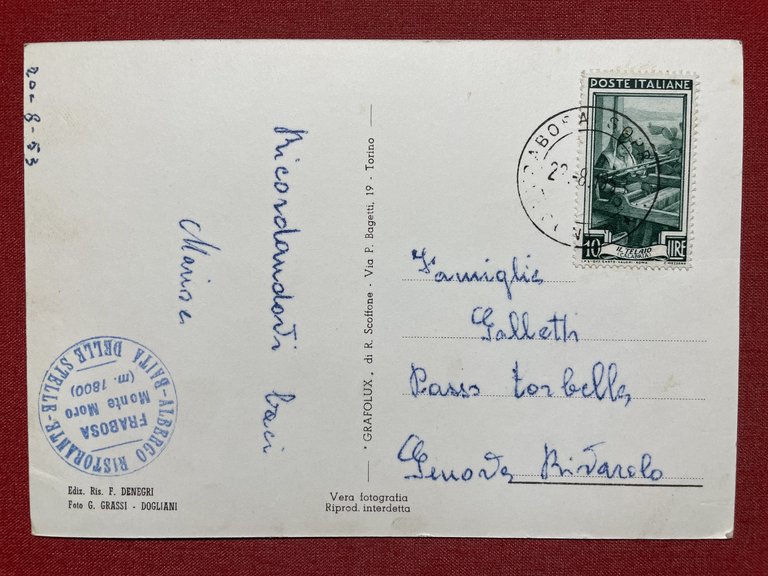 20-8-53
Ricordandovi baci
Marisa
ALBERGO RISTORANTE - BAITA DELLE STELLE -
FRABOSA
Monte Moro
(m. 1800)
Ediz. Ris. F. DENEGRI
Foto G. GRASSI - DOGLIANI
"GRAFOLUX" di R. Scoffone - Via P. Bagetti, 19 - Torino
Vera fotografia
Riprod. interdetta
POSTE ITALIANE
10 IL TELAIO LIRE
FRABOSA SOPR
Famiglia
Galletti
Passo Torbella,
Genova Rivarolo